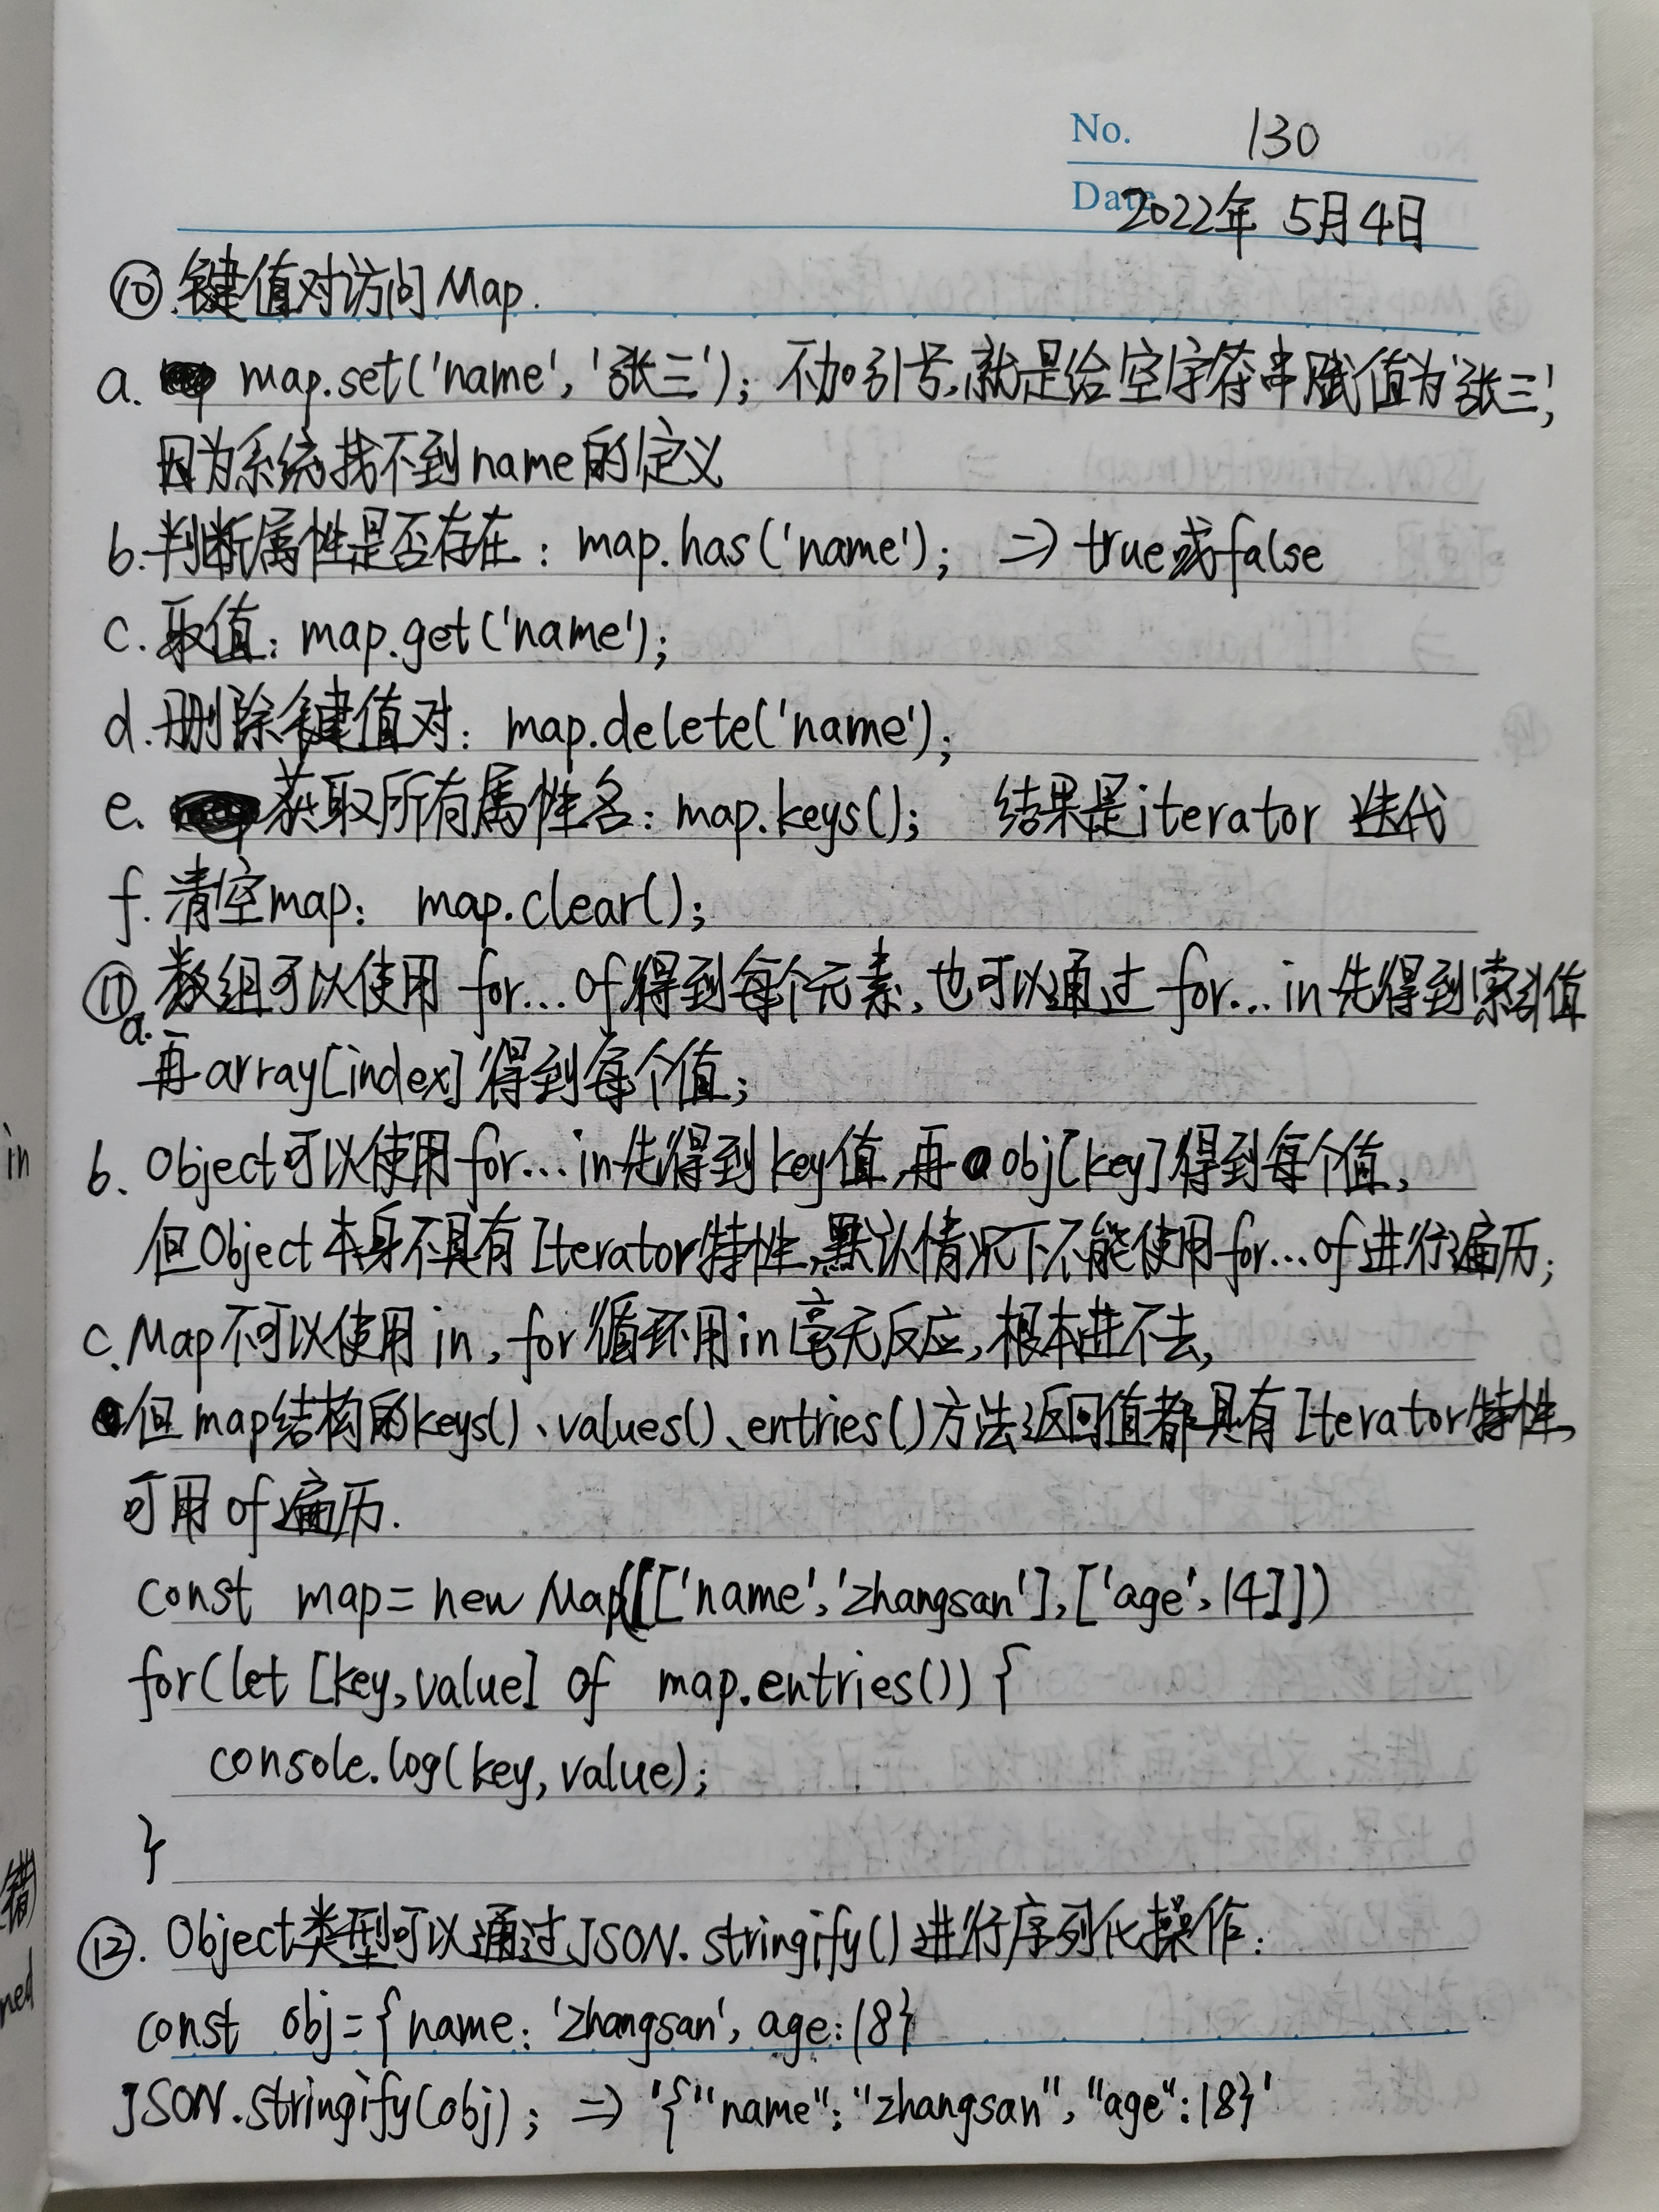 No. 130
Date 2022年 5月4日
⑩.键值对访问Map.
a. map.set('name', '张三'); 不加引号,就是给空字符串赋值为'张三',
因为系统找不到name的定义
b.判断属性是否存在: map.has('name'); => true或false
c.取值: map.get('name');
d.删除键值对: map.delete('name');
e. 获取所有属性名: map.keys(); 结果是iterator 迭代
f.清空map: map.clear();
⑪a.数组可以使用 for...of得到每个元素,也可以通过 for...in先得到索引值
再array[index]得到每个值;
b. Object可以使用for...in先得到key值,再obj[key]得到每个值,
但Object本身不具有Iterator特性,默认情况下不能使用for...of进行遍历;
c.Map不可以使用in, for循环用in毫无反应,根本进不去,
但map结构的keys()、values()、entries()方法返回值都具有Iterator特性,
可用of遍历.
const map = new Map([['name','zhangsan'],['age',14]])
for(let [key,value] of map.entries()) {
console.log(key,value);
}
⑫. Object类型可以通过JSON.stringify()进行序列化操作:
const obj={name: 'zhangsan', age:18}
JSON.stringify(obj); => '{"name":"zhangsan","age":18}'
in
错
ned